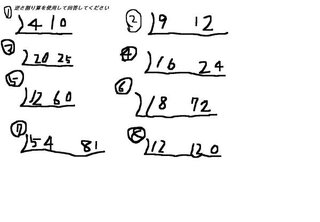 ① 逆さ割り算を使用して回答してください
4 10
② 9 12
③ 20 25
④ 16 24
⑤ 12 60
⑥ 18 72
⑦ 54 81
⑧ 12 120